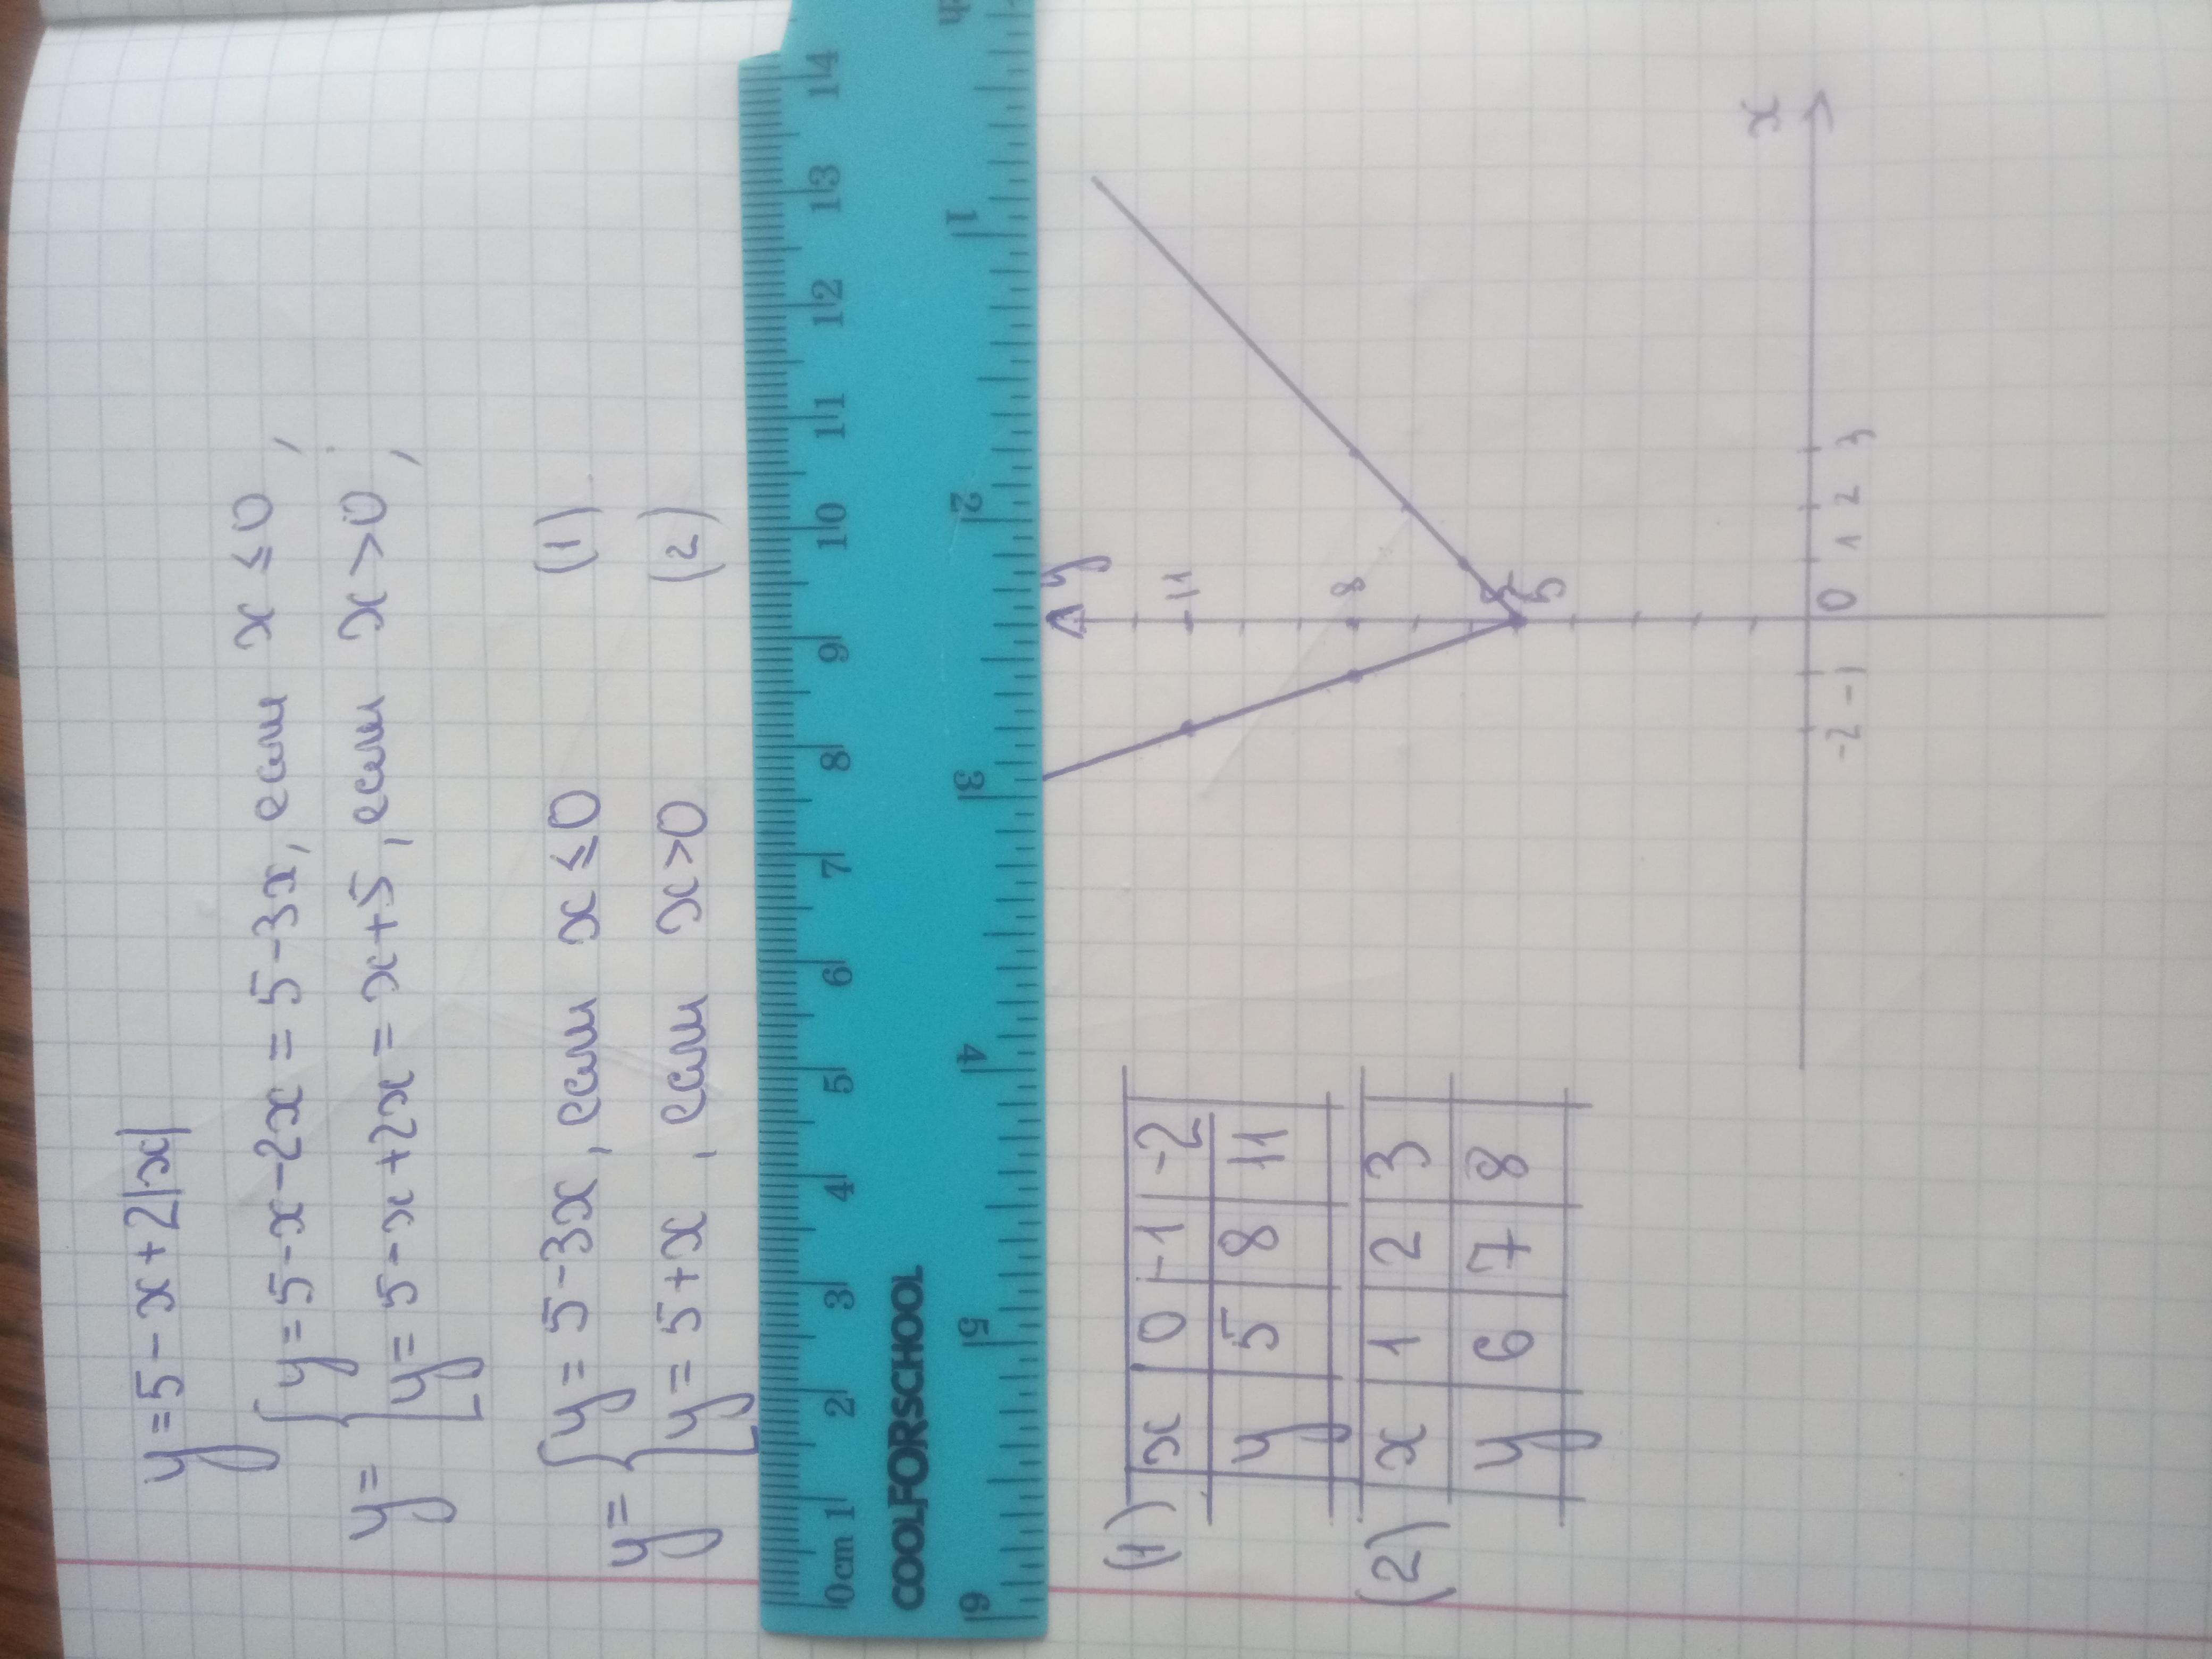 y=5-x+2|x|
y= {y=5-x-2x=5-3x, если x≤0,
y=5-x+2x=x+5, если x>0;
y= {y=5-3x, если x≤0 (1)
y=5+x, если x>0 (2)
0cm 1 2 3 4 5 6 7 8 9 10 11 12 13 14
COOLFORSCHOOL
6 5 4 3 2 1
(1) x 0 -1 -2
y 5 8 11
(2) x 1 2 3
y 6 7 8
y
11
8
5
x
-2 -1 0 1 2 3